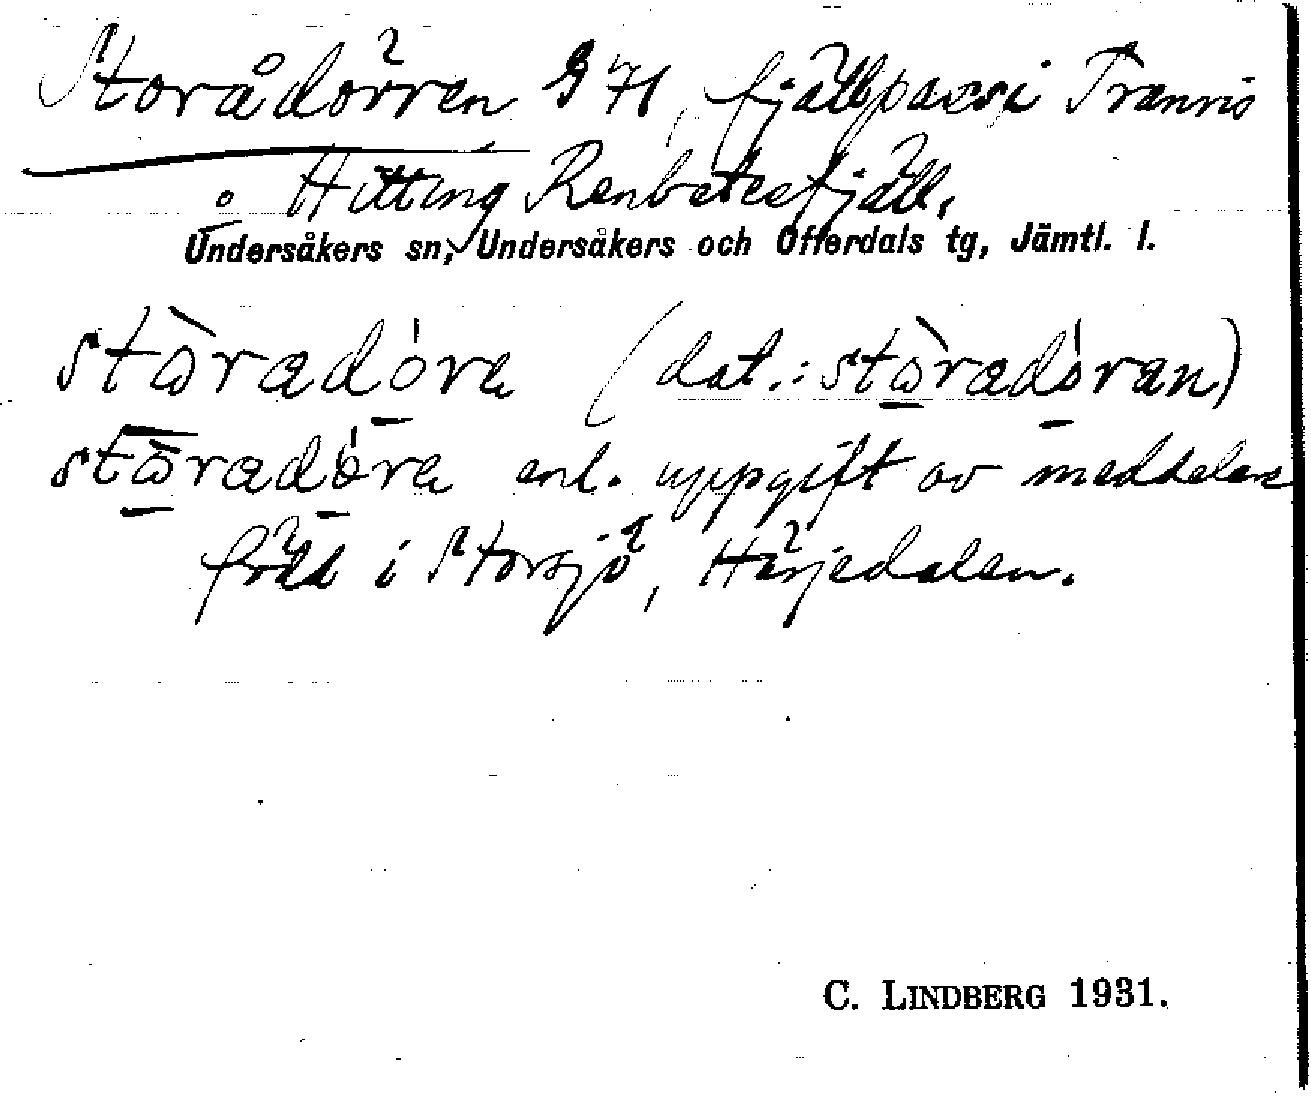 Storådörren G 71, fjällpass i Tranris
o. Hitting Renbetesfjäll.
Undersåkers sn, Undersåkers och Offerdals tg, Jämtl. l.
stòradóra (dat.: stòradóran)
stòradóra enl. uppgift av meddelare
född i Storsjö, Härjedalen.
C. LINDBERG 1931.